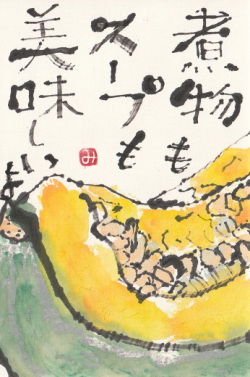 煮物も
スープも
美味しいよ
み